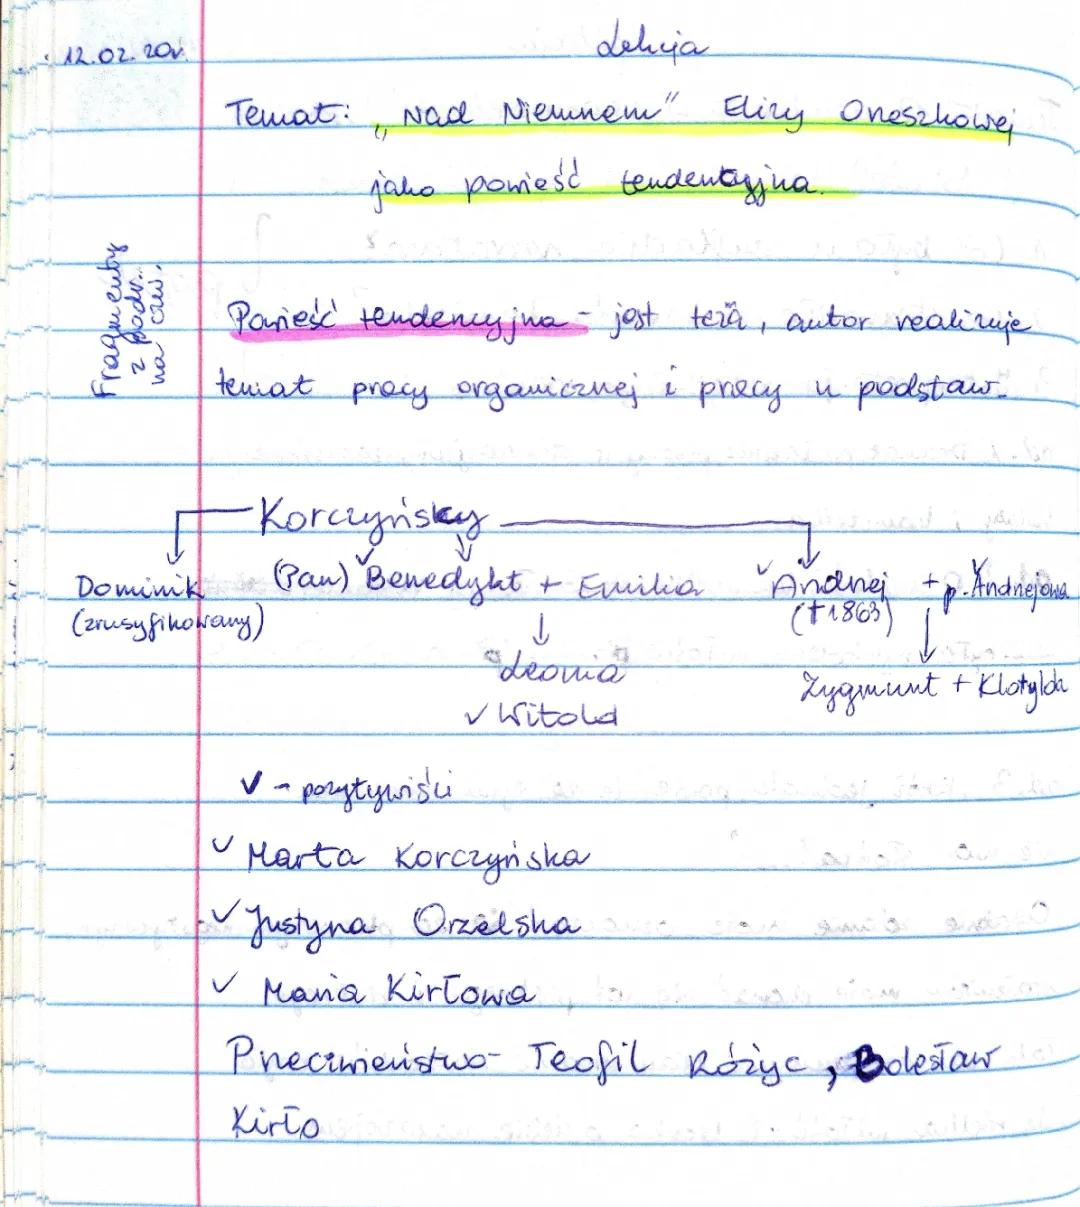 12.02.20
Lekcja
Temat: „Nad Niemnem" Elizy Orzeszkowej
jako powieść tendencyjna.
Fragmenty
z podr...
na czw.
Powieść tendencyjna - jest tezą, autor realizuje
temat pracy organicznej i pracy u podstaw.
Korczyńscy
Dominik (Pan) ✓Benedykt + Emilia ✓Andrzej + p. Andrzejowa
(zrusyfikowany) (†1863)
Leonia
Zygmunt + Klotylda
✓ Witold
✓ - pozytywiści
✓ Marta Korczyńska
✓ Justyna Orzelska
✓ Maria Kirłowa
Przeciwieństwo - Teofil Różyc, Bolesław
Kirło